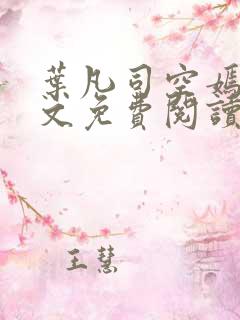 葉凡司空媽
文免費閱讀
王慧